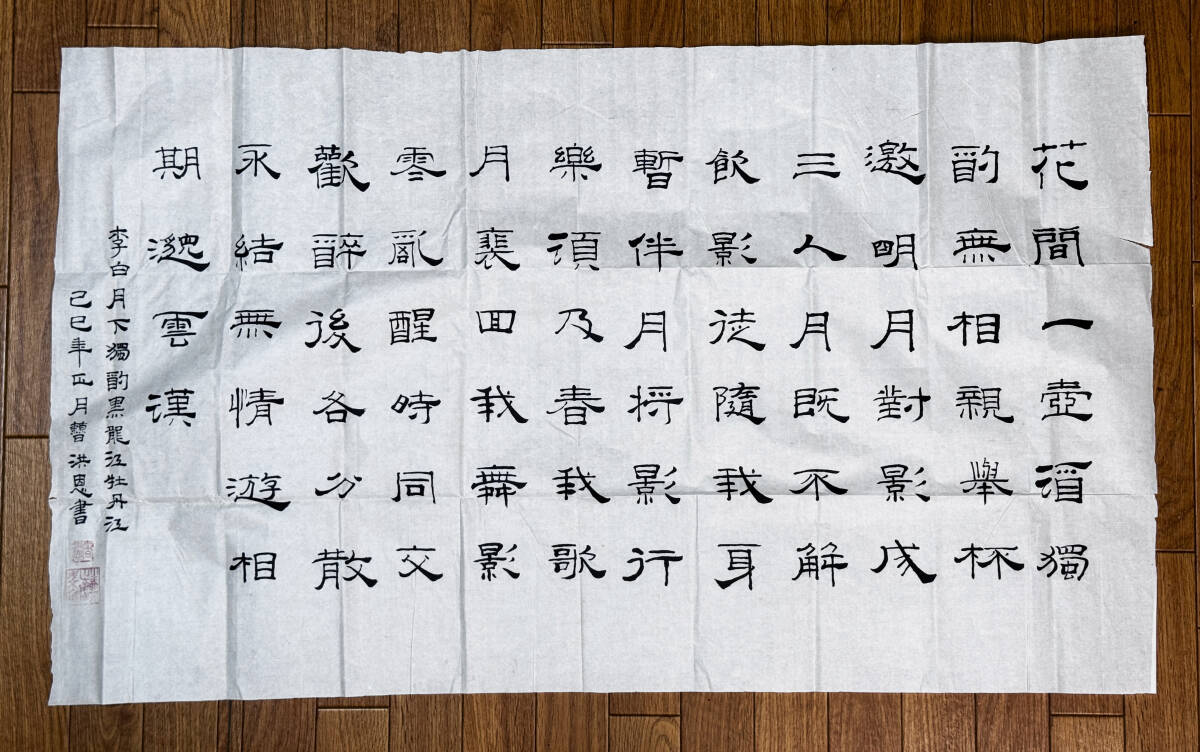 花間一壺酒獨
酌無相親舉杯
邀明月對影成
三人月既不解
飲影徒隨我身
暫伴月將影行
樂須及春我歌
月裴回我舞影
零亂醒時同交
歡醉後各分散
永結無情遊相
期邈雲漢
李白月下獨酌黑龍江牡丹江
己巳年正月曹洪恩書